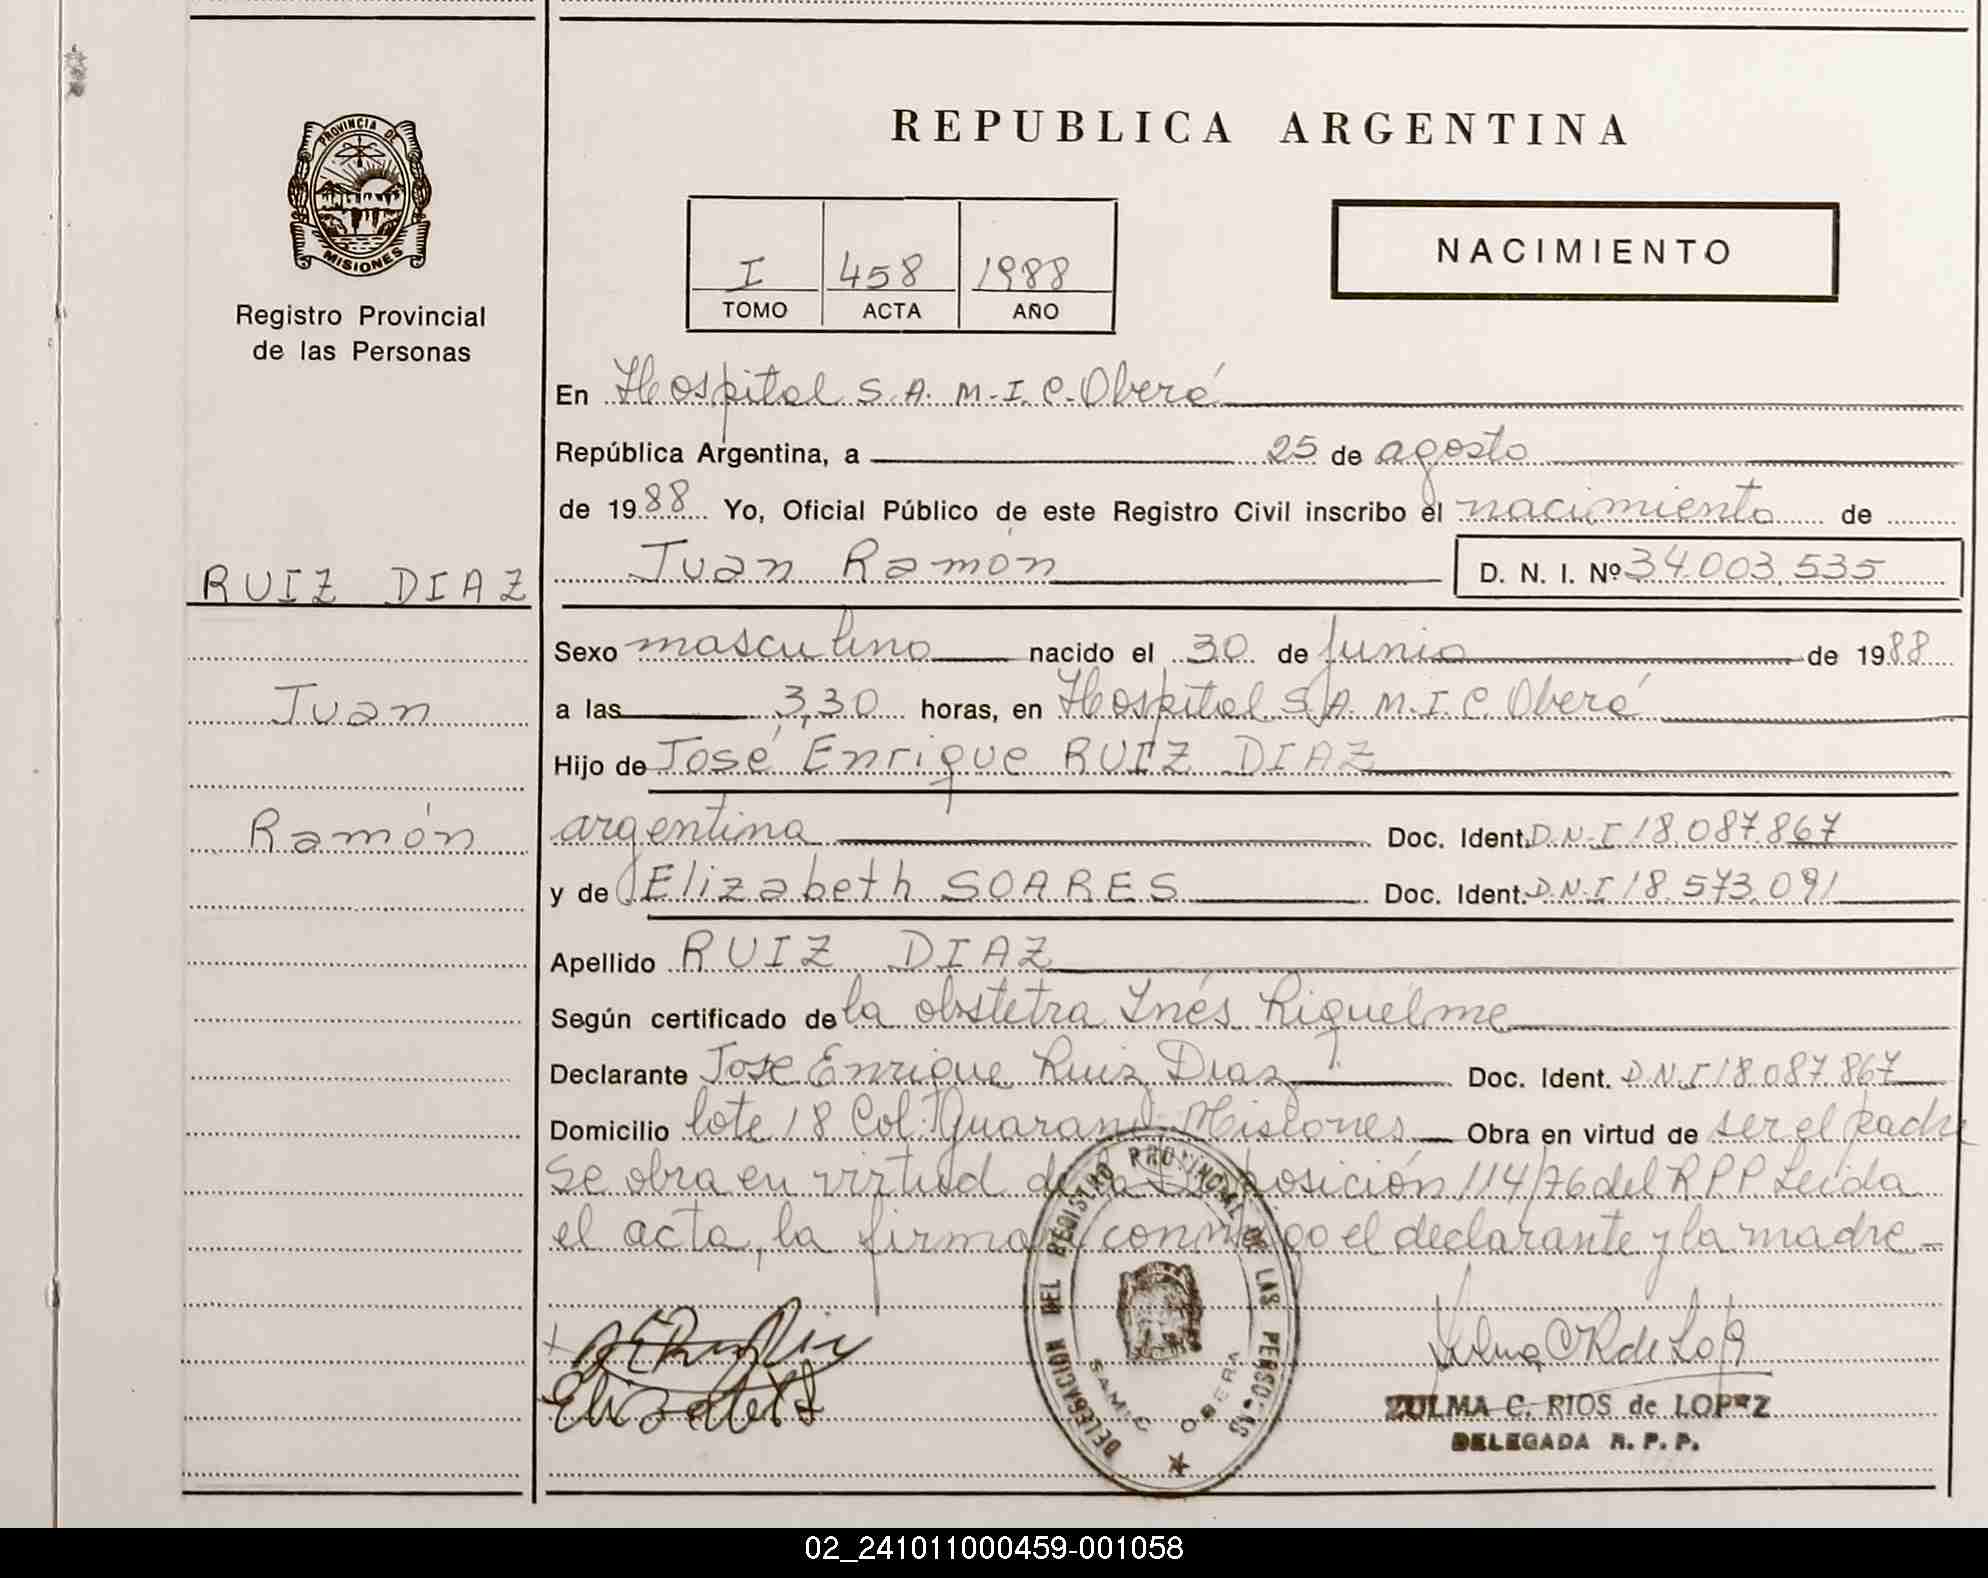 REPUBLICA ARGENTINA
PROVINCIA DE
MISIONES
Registro Provincial
de las Personas
I 458 1988
TOMO ACTA AÑO
NACIMIENTO
En Hospital S.A.M.I.C. Oberá
República Argentina, a 25 de agosto
de 1988 Yo, Oficial Público de este Registro Civil inscribo el nacimiento de
Juan Ramón D. N. I. Nº 34.003.535
RUIZ DIAZ
Juan
Ramón
Sexo masculino nacido el 30 de junio de 1988
a las 3,30 horas, en Hospital S.A.M.I.C. Oberá
Hijo de José Enrique RUIZ DIAZ
argentina Doc. Ident. D.N.I 18.087.867
y de Elizabeth SOARES Doc. Ident. D.N.I 18.573.091
Apellido RUIZ DIAZ
Según certificado de la obstetra Inés Riquelme
Declarante José Enrique Ruiz Diaz Doc. Ident. D.N.I 18.087.867
Domicilio lote 18 Col. Guaraní Misiones Obra en virtud de ser el padre
se obra en virtud de la Disposición 114/76 del R.P.P. Leida
el acta, la firman conmigo el declarante y la madre
DELEGACION DEL REGISTRO PROVINCIAL DE LAS PERSONAS
SAMIC OBERA
Elizabeth S
ZULMA C. RIOS de LOPEZ
DELEGADA R. P. P.
02_241011000459-001058